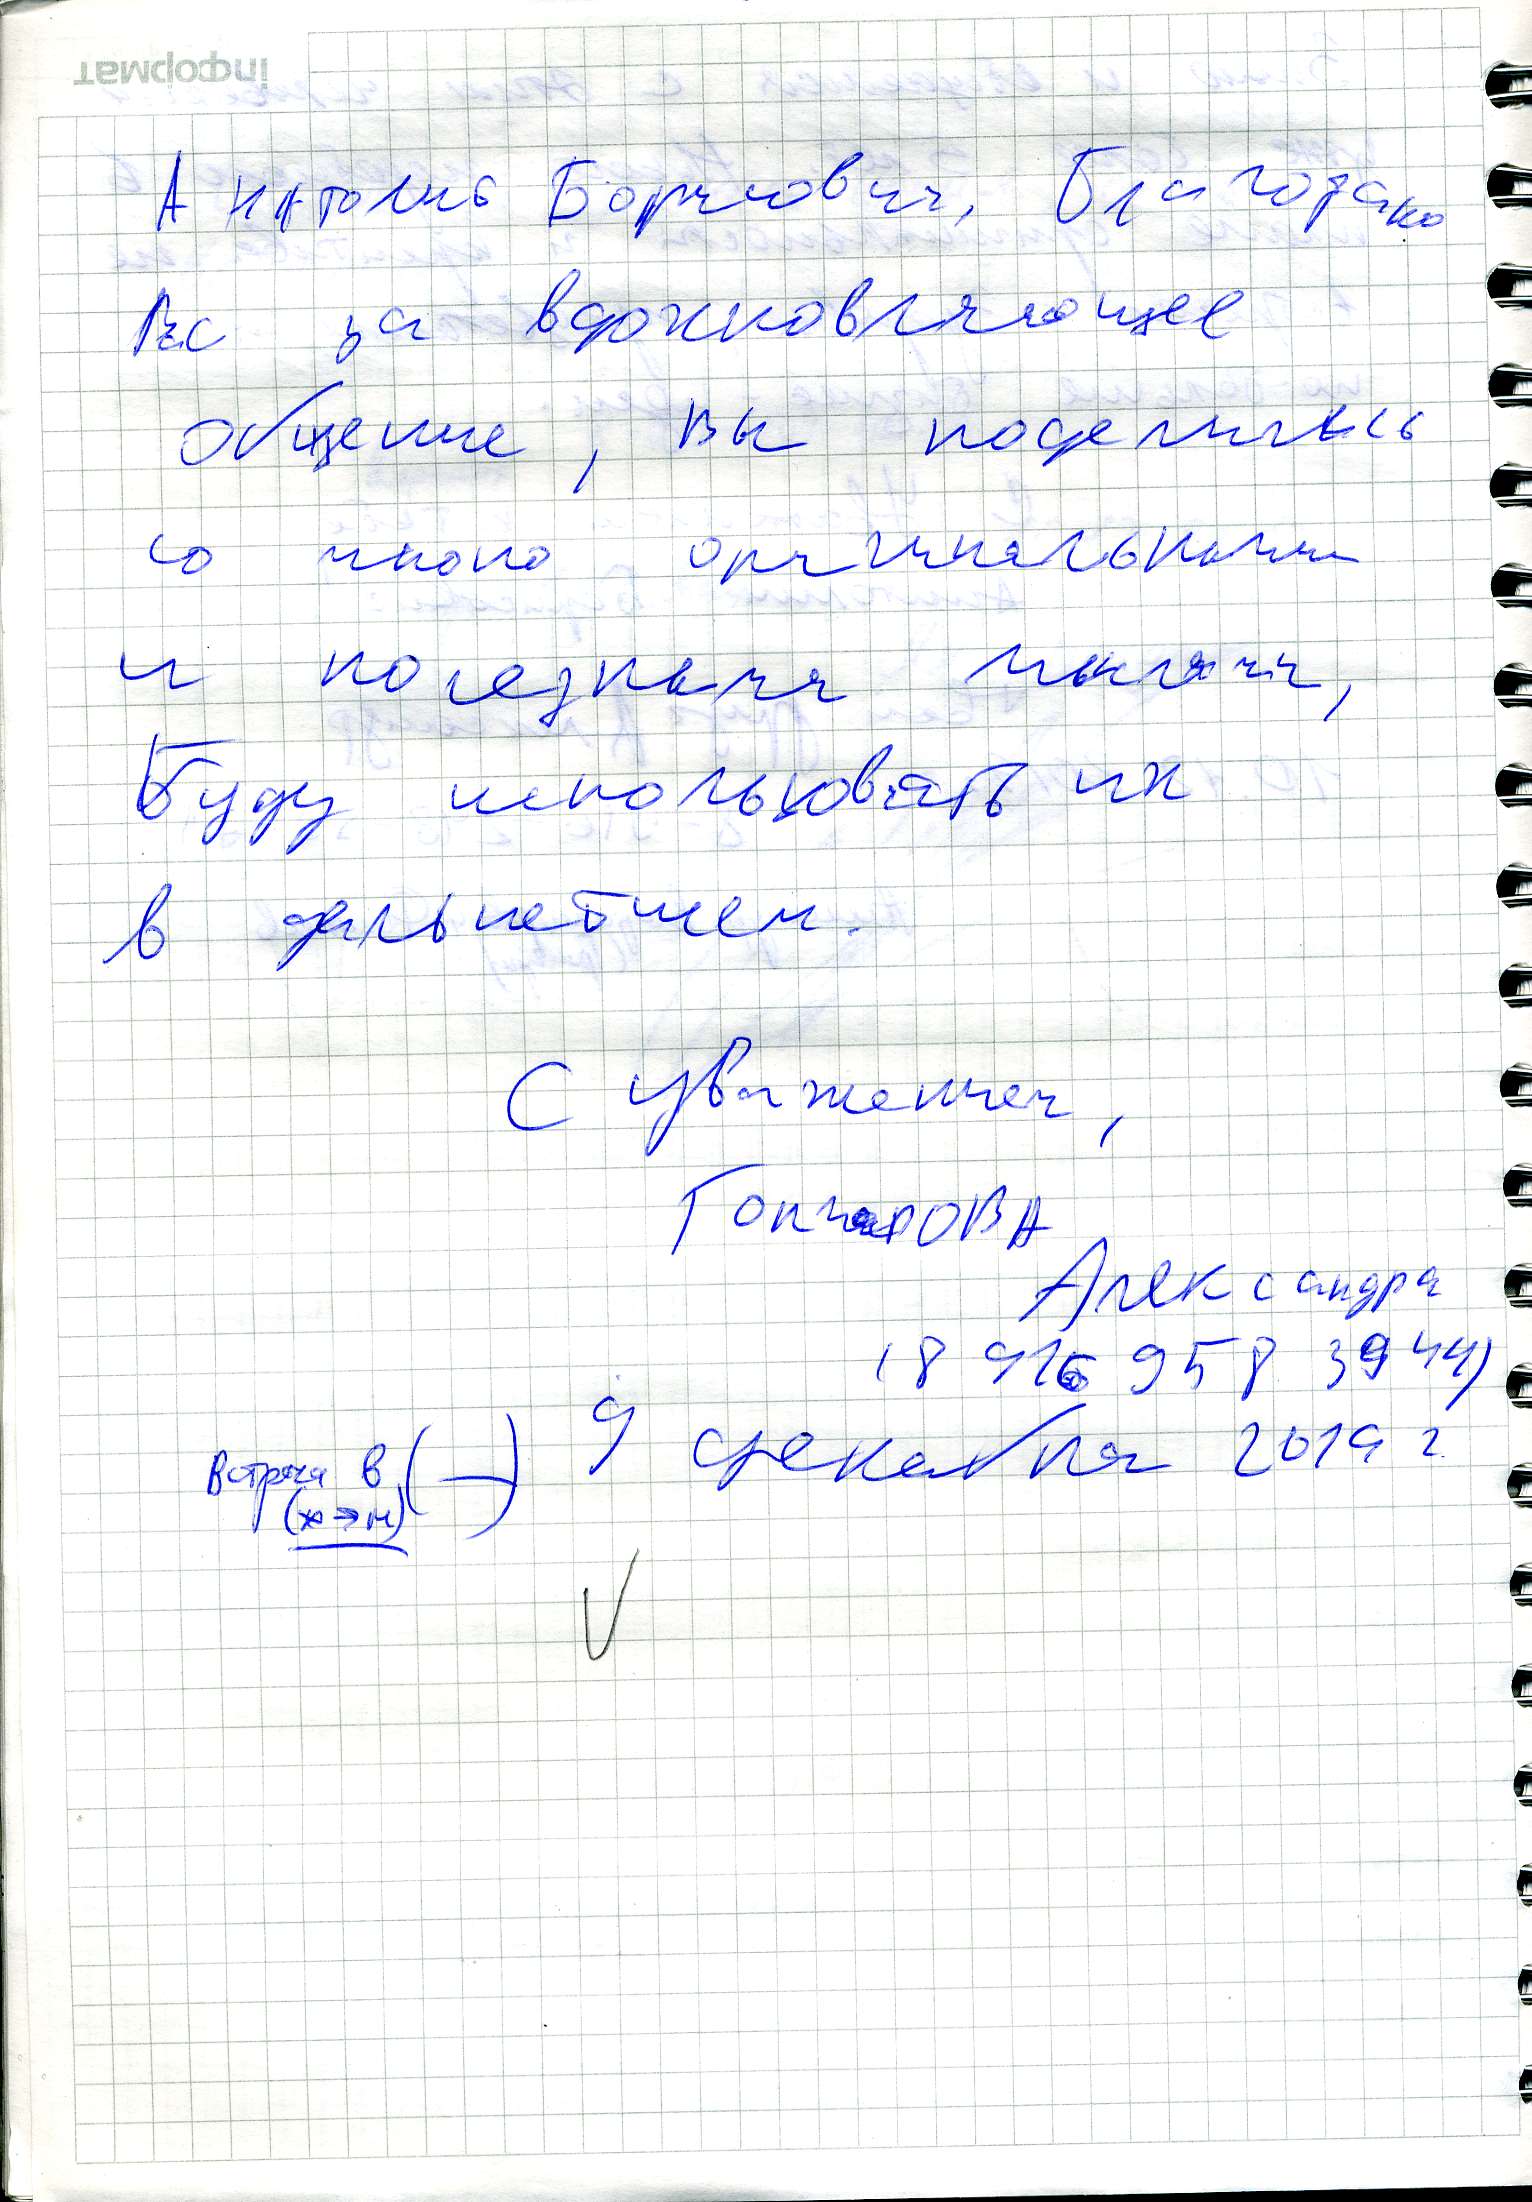 інформат
Анатолий Борисович, Благодарю
Вас за вдохновляющее
общение, Вы поделились
со мною оригинальными
и полезными мыслями,
Буду использовать их
в дальнейшем.
С уважением,
Гончарова
Александра
(8 916 958 39 44)
9 декабря 2019 г.
Встреча в (—)
(ж→м)